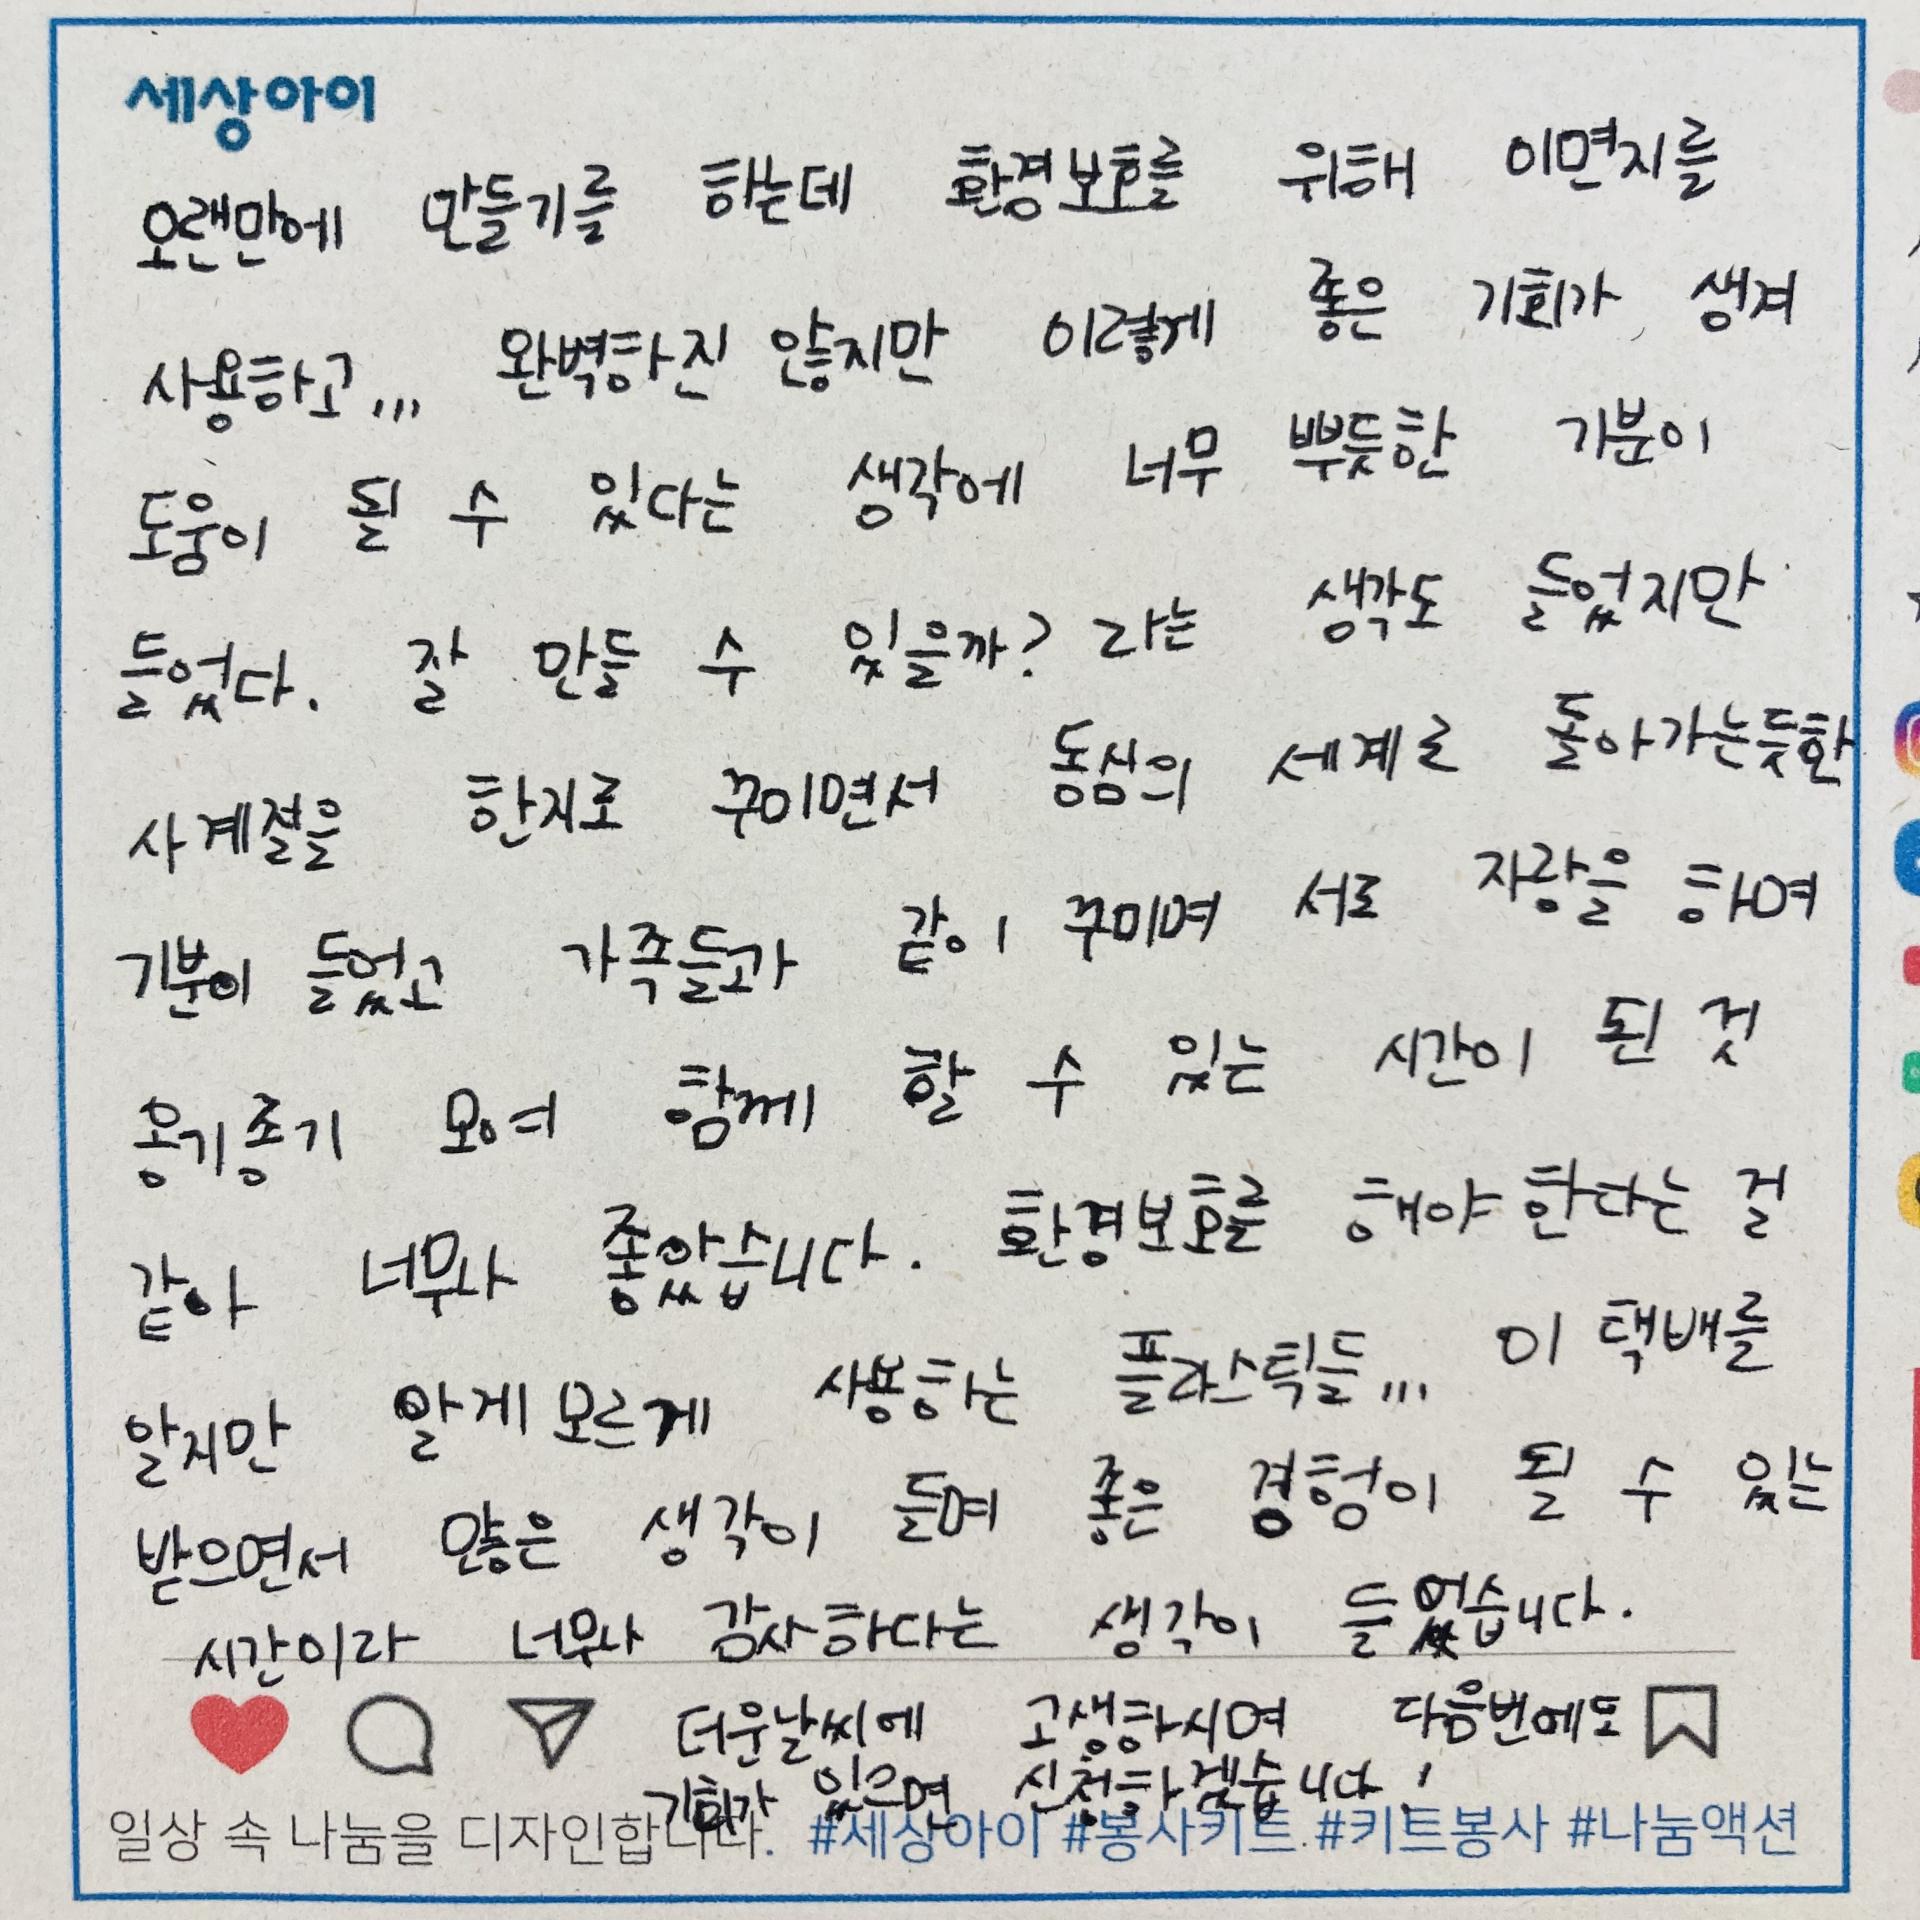 세상아이
오랜만에 만들기를 하는데 환경보호를 위해 이면지를
사용하고... 완벽하진 않지만 이렇게 좋은 기회가 생겨
도움이 될 수 있다는 생각에 너무 뿌듯한 기분이
들었다. 잘 만들 수 있을까? 라는 생각도 들었지만
사계절을 한지로 꾸미면서 동심의 세계로 돌아가는듯한
기분이 들었고 가족들과 같이 꾸미며 서로 자랑을 하며
옹기종기 모여 함께 할 수 있는 시간이 된 것
같아 너무나 좋았습니다. 환경보호를 해야한다는 걸
알지만 알게모르게 사용하는 플라스틱들... 이 택배를
받으면서 많은 생각이 들며 좋은 경험이 될 수 있는
시간이라 너무나 감사하다는 생각이 들었습니다.
더운날씨에 고생하시며 다음번에도
기회가 있으면 신청하겠습니다!
일상 속 나눔을 디자인합니다. #세상아이 #봉사키트 #키트봉사 #나눔액션